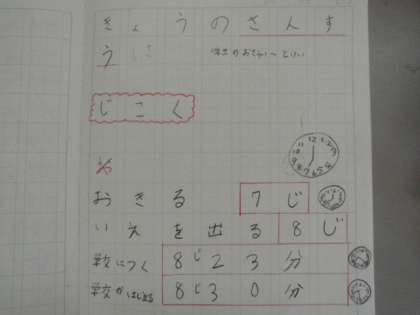 きょうのさんす
う
じこく
おきる 7じ
いえを出る 8じ
学校につく 8じ23分
学校がはじまる 8じ30分